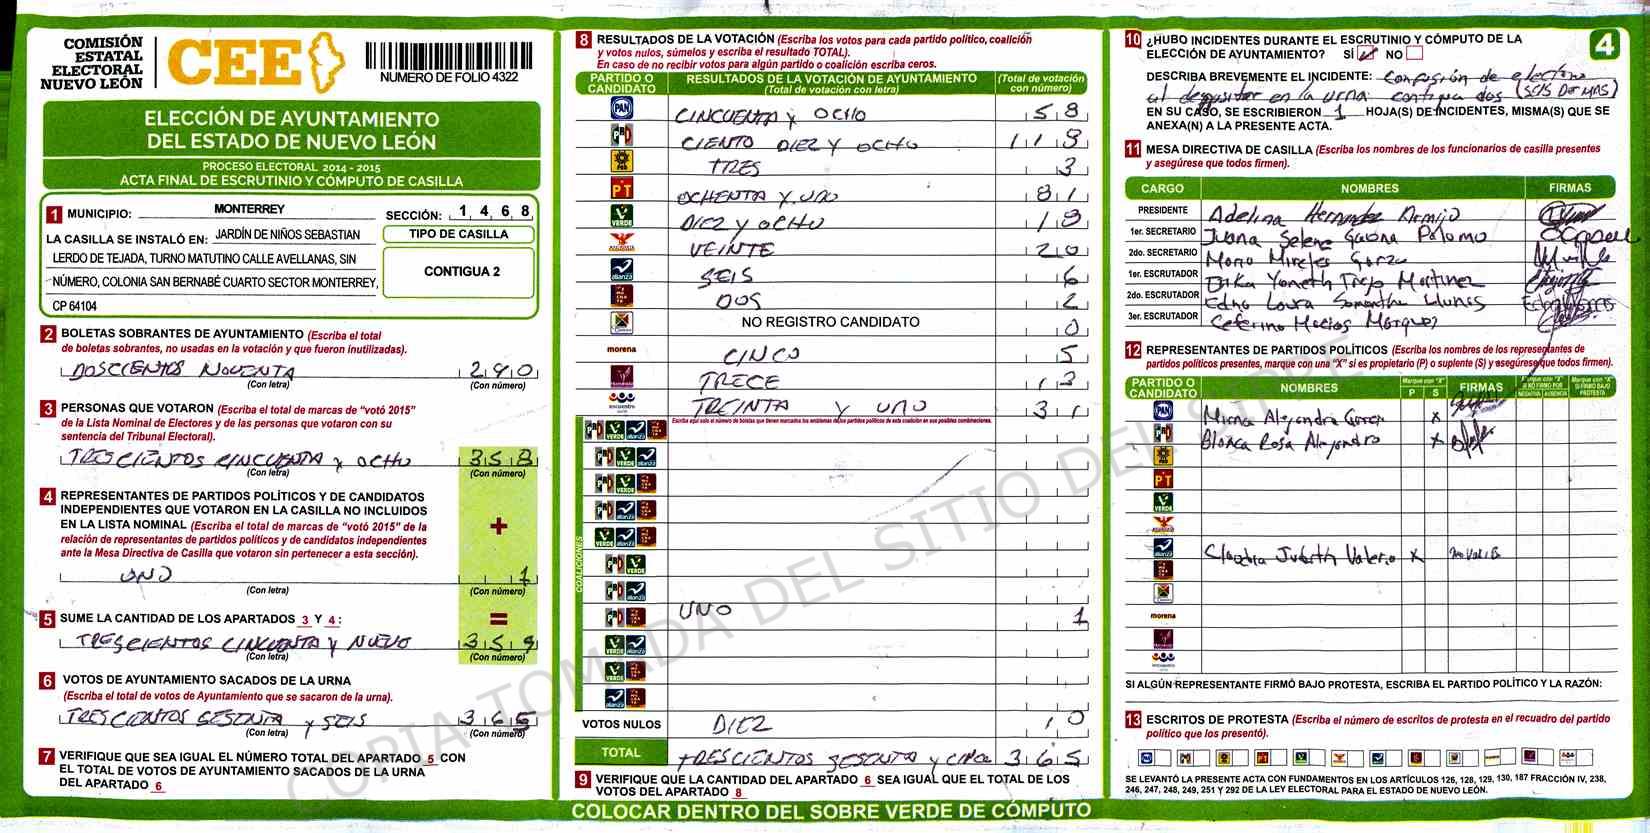 COMISIÓN
ESTATAL
ELECTORAL
NUEVO LEÓN
CEE
NUMERO DE FOLIO 4322
ELECCIÓN DE AYUNTAMIENTO
DEL ESTADO DE NUEVO LEÓN
PROCESO ELECTORAL 2014 - 2015
ACTA FINAL DE ESCRUTINIO Y CÓMPUTO DE CASILLA
1 MUNICIPIO: MONTERREY SECCIÓN: 1 4 6 8
LA CASILLA SE INSTALÓ EN: JARDÍN DE NIÑOS SEBASTIAN
TIPO DE CASILLA
LERDO DE TEJADA, TURNO MATUTINO CALLE AVELLANAS, SIN
NÚMERO, COLONIA SAN BERNABÉ CUARTO SECTOR MONTERREY,
CP 64104
CONTIGUA 2
2 BOLETAS SOBRANTES DE AYUNTAMIENTO (Escriba el total
de boletas sobrantes, no usadas en la votación y que fueron inutilizadas).
DOSCIENTOS NOVENTA 290
(Con letra) (Con número)
3 PERSONAS QUE VOTARON (Escriba el total de marcas de “votó 2015”
de la Lista Nominal de Electores y de las personas que votaron con su
sentencia del Tribunal Electoral).
TRESCIENTOS CINCUENTA y OCHO 358
(Con letra) (Con número)
4 REPRESENTANTES DE PARTIDOS POLÍTICOS Y DE CANDIDATOS
INDEPENDIENTES QUE VOTARON EN LA CASILLA NO INCLUIDOS
EN LA LISTA NOMINAL (Escriba el total de marcas de “votó 2015” de la
relación de representantes de partidos políticos y de candidatos independientes
ante la Mesa Directiva de Casilla que votaron sin pertenecer a esta sección).
+
UNO 1
(Con letra) (Con número)
5 SUME LA CANTIDAD DE LOS APARTADOS 3 Y 4:
=
TRESCIENTOS CINCUENTA y NUEVO 359
(Con letra) (Con número)
6 VOTOS DE AYUNTAMIENTO SACADOS DE LA URNA
(Escriba el total de votos de Ayuntamiento que se sacaron de la urna).
TRESCIENTOS SESENTA y SEIS 365
(Con letra) (Con número)
7 VERIFIQUE QUE SEA IGUAL EL NÚMERO TOTAL DEL APARTADO 5 CON
EL TOTAL DE VOTOS DE AYUNTAMIENTO SACADOS DE LA URNA
DEL APARTADO 6
8 RESULTADOS DE LA VOTACIÓN (Escriba los votos para cada partido político, coalición
y votos nulos, súmelos y escriba el resultado TOTAL).
En caso de no recibir votos para algún partido o coalición escriba ceros.
PARTIDO O CANDIDATO
RESULTADOS DE LA VOTACIÓN DE AYUNTAMIENTO
(Total de votación con letra)
(Total de votación con número)
PAN CINCUENTA y OCHO 58
CIENTO DIEZ Y OCHO 118
TRES 3
PT OCHENTA Y UNO 81
VERDE DIEZ y OCHO 18
VEINTE 20
alianza SEIS 6
DOS 2
NO REGISTRO CANDIDATO 0
morena CINCO 5
TRECE 13
encuentro TREINTA Y UNO 31
Escriba aquí solo el número de boletas que tienen marcados los emblemas de los partidos políticos de esta coalición en sus posibles combinaciones.
COALICIONES
UNO 1
VOTOS NULOS DIEZ 10
TOTAL TRESCIENTOS SESENTA y CINCO 365
9 VERIFIQUE QUE LA CANTIDAD DEL APARTADO 6 SEA IGUAL QUE EL TOTAL DE LOS
VOTOS DEL APARTADO 8
COLOCAR DENTRO DEL SOBRE VERDE DE CÓMPUTO
10 ¿HUBO INCIDENTES DURANTE EL ESCRUTINIO Y CÓMPUTO DE LA
ELECCIÓN DE AYUNTAMIENTO? SÍ NO
4
DESCRIBA BREVEMENTE EL INCIDENTE: Confusión de electores
al depositar en la urna contigua dos (SEIS DE MAS)
EN SU CASO, SE ESCRIBIERON 1 HOJA(S) DE INCIDENTES, MISMA(S) QUE SE
ANEXA(N) A LA PRESENTE ACTA.
11 MESA DIRECTIVA DE CASILLA (Escriba los nombres de los funcionarios de casilla presentes
y asegúrese que todos firmen).
CARGO NOMBRES FIRMAS
PRESIDENTE Adelina Hernandez Armijo
1er. SECRETARIO Juana Selene Gaona Palomo
2do. SECRETARIO Mario Mireles Garza
1er. ESCRUTADOR Erika Yaneth Trejo Martinez
2do. ESCRUTADOR Edna Laura Samantha Llunes
3er. ESCRUTADOR Ceferino Macias Marquez
12 REPRESENTANTES DE PARTIDOS POLÍTICOS (Escriba los nombres de los representantes de
partidos políticos presentes, marque con una “X” si es propietario (P) o suplente (S) y asegúrese que todos firmen).
PARTIDO O CANDIDATO
NOMBRES
Marque con "X"
P S
FIRMAS
Marque con "X" SI NO FIRMÓ POR
NEGATIVA AUSENCIA
Marque con "X" SI FIRMÓ BAJO PROTESTA
PAN Mirna Alejandra Garcia X
Blanca Rosa Alejandro X
PT
VERDE
alianza Claudia Judith Valerio X
morena
encuentro
SI ALGÚN REPRESENTANTE FIRMÓ BAJO PROTESTA, ESCRIBA EL PARTIDO POLÍTICO Y LA RAZÓN:
13 ESCRITOS DE PROTESTA (Escriba el número de escritos de protesta en el recuadro del partido
político que los presentó).
SE LEVANTÓ LA PRESENTE ACTA CON FUNDAMENTOS EN LOS ARTÍCULOS 126, 128, 129, 130, 187 FRACCIÓN IV, 238,
246, 247, 248, 249, 251 Y 292 DE LA LEY ELECTORAL PARA EL ESTADO DE NUEVO LEÓN.
COPIA TOMADA DEL SITIO DEL SIPRE